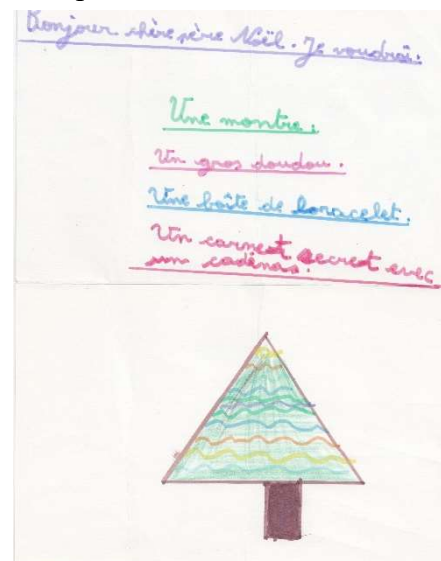 Bonjour chère père Noël. Je voudrai:
Une montre.
Un gros doudou.
Une boîte de boracelet.
Un carnest secrest evec
um cadénas.